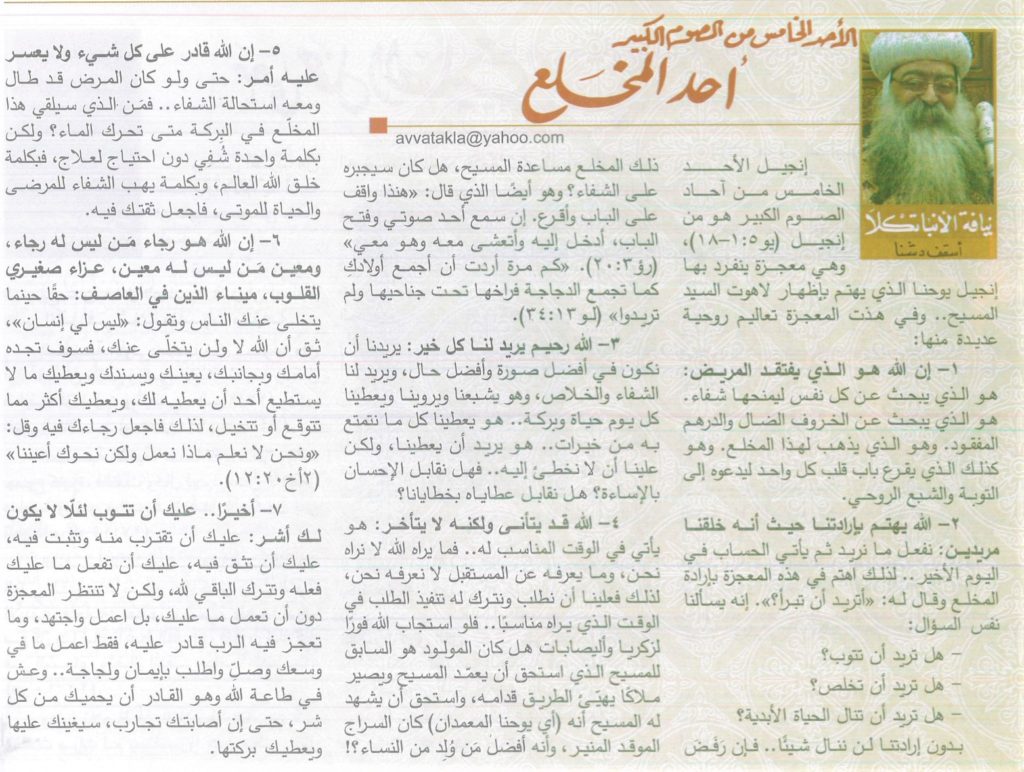 الأحد الخامس من الصوم الكبير
أحد المخلع
avvatakla@yahoo.com
نيافة الأنبا تكلا
أسقف دشنا
إنجيل الأحد
الخامس من آحاد
الصوم الكبير هو من
إنجيل (يو٥:١-١٨)،
وهي معجزة ينفرد بها
إنجيل يوحنا الذي يهتم بإظهار لاهوت السيد
المسيح.. وفي هذت المعجزة تعاليم روحية
عديدة منها:
١- إن الله هو الذي يفتقد المريض:
هو الذي يبحث عن كل نفس ليمنحها شفاء.
هو الذي يبحث عن الخروف الضال والدرهم
المفقود. وهو الذي يذهب لهذا المخلع. وهو
كذلك الذي يقرع باب قلب كل واحد ليدعوه إلى
التوبة والشبع الروحي.
٢- الله يهتم بإرادتنا حيث أنه خلقنا
مريدين: نفعل ما نريد ثم يأتي الحساب في
اليوم الأخير.. لذلك اهتم في هذه المعجزة بإرادة
المخلع وقال له: «أتريد أن تبرأ؟».. إنه يسألنا
نفس السؤال:
– هل تريد أن تتوب؟
– هل تريد أن تخلص؟
– هل تريد أن تنال الحياة الأبدية؟
بدون إرادتنا لن ننال شيئًا.. فإن رَفَضَ
ذلك المخلع مساعدة المسيح، هل كان سيجبره
على الشفاء؟ وهو أيضًا الذي قال: «هنذا واقف
على الباب وأقرع. إن سمع أحد صوتي وفتح
الباب، أدخل إليه وأتعشى معه وهو معي»
(رؤ٣:٢٠). «كم مرة أردت أن أجمع أولادك
كما تجمع الدجاجة فراخها تحت جناحيها ولم
تريدوا» (لو١٣:٣٤).
٣- الله رحيم يريد لنا كل خير: يريدنا أن
نكون في أفضل صورة وأفضل حال، ويريد لنا
الشفاء والخلاص، وهو يشبعنا ويروينا ويعطينا
كل يوم حياة وبركة.. هو يعطينا كل ما نتمتع
به من خيرات.. هو يريد أن يعطينا، ولكن
علينا أن لا نخطئ إليه.. فهل نقابل الإحسان
بالإساءة؟ هل نقابل عطاياه بخطايانا؟
٤- الله قد يتأنى ولكنه لا يتأخر: هو
يأتي في الوقت المناسب له.. فما يراه الله لا نراه
نحن، وما يعرفه عن المستقبل لا نعرفه نحن،
لذلك فعلينا أن نطلب ونترك له تنفيذ الطلب في
الوقت الذي يراه مناسبًا.. فلو استجاب الله فورًا
لزكريا وأليصابات هل كان المولود هو السابق
للمسيح الذي استحق أن يعمّد المسيح ويصير
ملاكًا يهيّئ الطريق قدامه، واستحق أن يشهد
له المسيح أنه (أي يوحنا المعمدان) كان السراج
الموقد المنير، وأنه أفضل مَن وُلِد من النساء؟!
٥- إن الله قادر على كل شيء ولا يعسر
عليه أمر: حتى ولو كان المرض قد طال
ومعه استحالة الشفاء.. فمَن الذي سيلقي هذا
المخلّع في البِركة متى تحرك الماء؟ ولكن
بكلمة واحدة شُفِي دون احتياج لعلاج، فبكلمة
خلق الله العالم، وبكلمة يهب الشفاء للمرضى
والحياة للموتى، فاجعل ثقتك فيه.
٦- إن الله هو رجاء مَن ليس له رجاء،
ومعين مَن ليس له معين، عزاء صغيري
القلوب، ميناء الذين في العاصف: حقًا حينما
يتخلى عنك الناس وتقول: «ليس لي إنسان»،
ثق أن الله لا ولن يتخلّى عنك، فسوف تجده
أمامك وبجانبك، يعينك ويسندك ويعطيك ما لا
يستطيع أحد أن يعطيه لك، ويعطيك أكثر مما
تتوقع أو تتخيل، لذلك فاجعل رجاءك فيه وقل:
«ونحن لا نعلم ماذا نعمل ولكن نحوك أعيننا»
(٢أخ٢٠:١٢).
٧- أخيرًا.. عليك أن تتوب لئلا لا يكون
لك أشر: عليك أن تقترب منه وتثبت فيه،
عليك أن تثق فيه، عليك أن تفعل ما عليك
فعله وتترك الباقي لله، ولكن لا تنتظر المعجزة
دون أن تعمل ما عليك، بل اعمل واجتهد، وما
تعجز فيه الرب قادر عليه، فقط اعمل ما في
وسعك وصلِّ واطلب بإيمان ولجاجة.. وعش
في طاعة الله وهو القادر أن يحميك من كل
شر، حتى إن أصابتك تجارب، سيغينك عليها
ويعطيك بركتها.